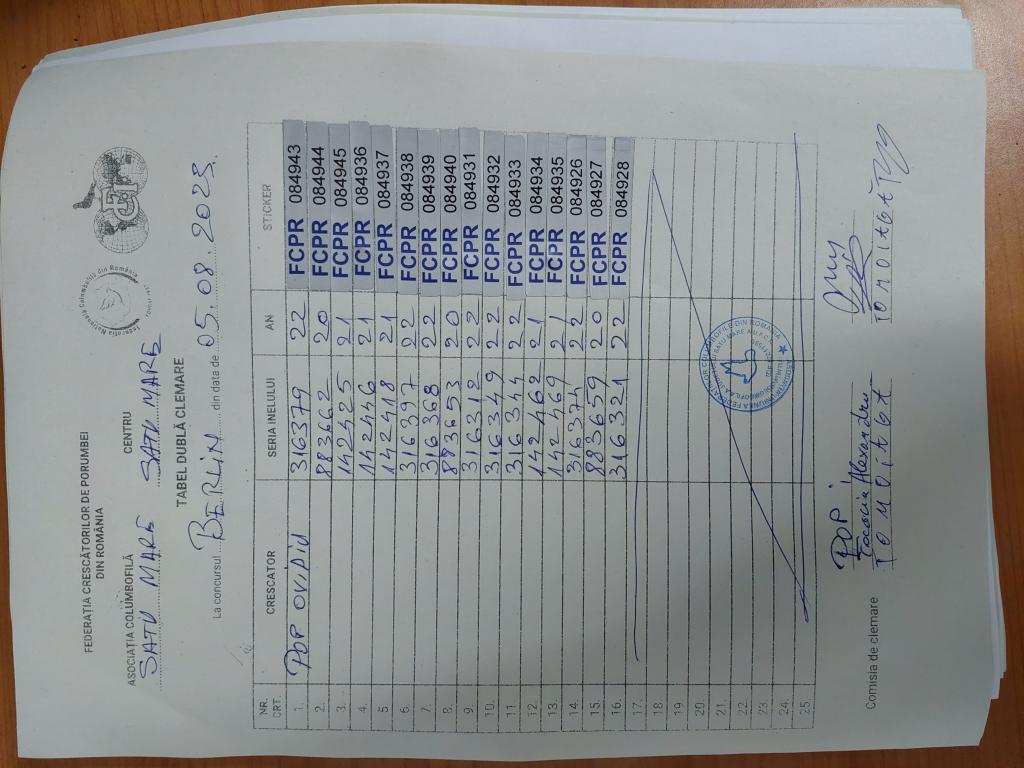 FEDERAȚIA CRESCĂTORILOR DE PORUMBEI
DIN ROMÂNIA
ASOCIAȚIA COLUMBOFILĂ CENTRU
SATU MARE SATU MARE
TABEL DUBLĂ CLEMARE
La concursul BERLIN din data de 05.08.2023.
NR. CRT. CRESCATOR SERIA INELULUI AN STICKER
1. POP OVIDIU 316379 22 FCPR 084943
2. 883662 20 FCPR 084944
3. 142425 21 FCPR 084945
4. 142446 21 FCPR 084936
5 142418 21 FCPR 084937
6. 316397 22 FCPR 084938
7. 316368 22 FCPR 084939
8. 883653 20 FCPR 084940
9. 316312 22 FCPR 084931
10. 316349 22 FCPR 084932
11 316344 22 FCPR 084933
12. 142462 21 FCPR 084934
13. 142469 21 FCPR 084935
14. 316374 22 FCPR 084926
15. 883659 20 FCPR 084927
16. 316321 22 FCPR 084928
17.
18.
19
20.
21.
22
23.
24.
25.
POP
Comisia de clemare Alexandru